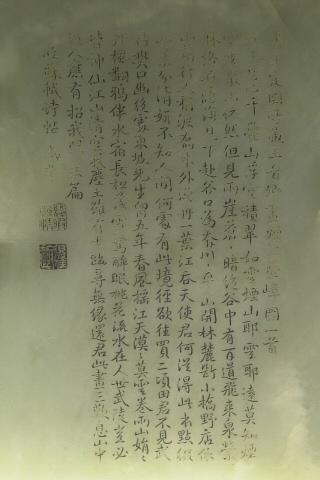 嶂圖一首
千疊山浮空積翠如雲煙山耶雲耶遠莫知煙
山依然但見兩崖蒼蒼暗絕谷中有百道飛來泉縈
林絡石隱下赴谷口為奔川山開林麓斷小橋野店依
行人稍喬木外漁舟一葉江吞天使君何從得此本點綴
分清妍不知人間何處有此境徑欲往買二頃田君不見武
樊口幽絕處東坡先生留五年春風搖江天漠漠莫雲卷雨山娟娟
翻鴉伴水宿長松落雪驚醉眠桃花溪水在人世武陵豈必
皆神仙江山清空我塵土雖有去路尋無緣還君此畫三歎息山中
故人應有招我歸來篇
臨蘇軾詩帖